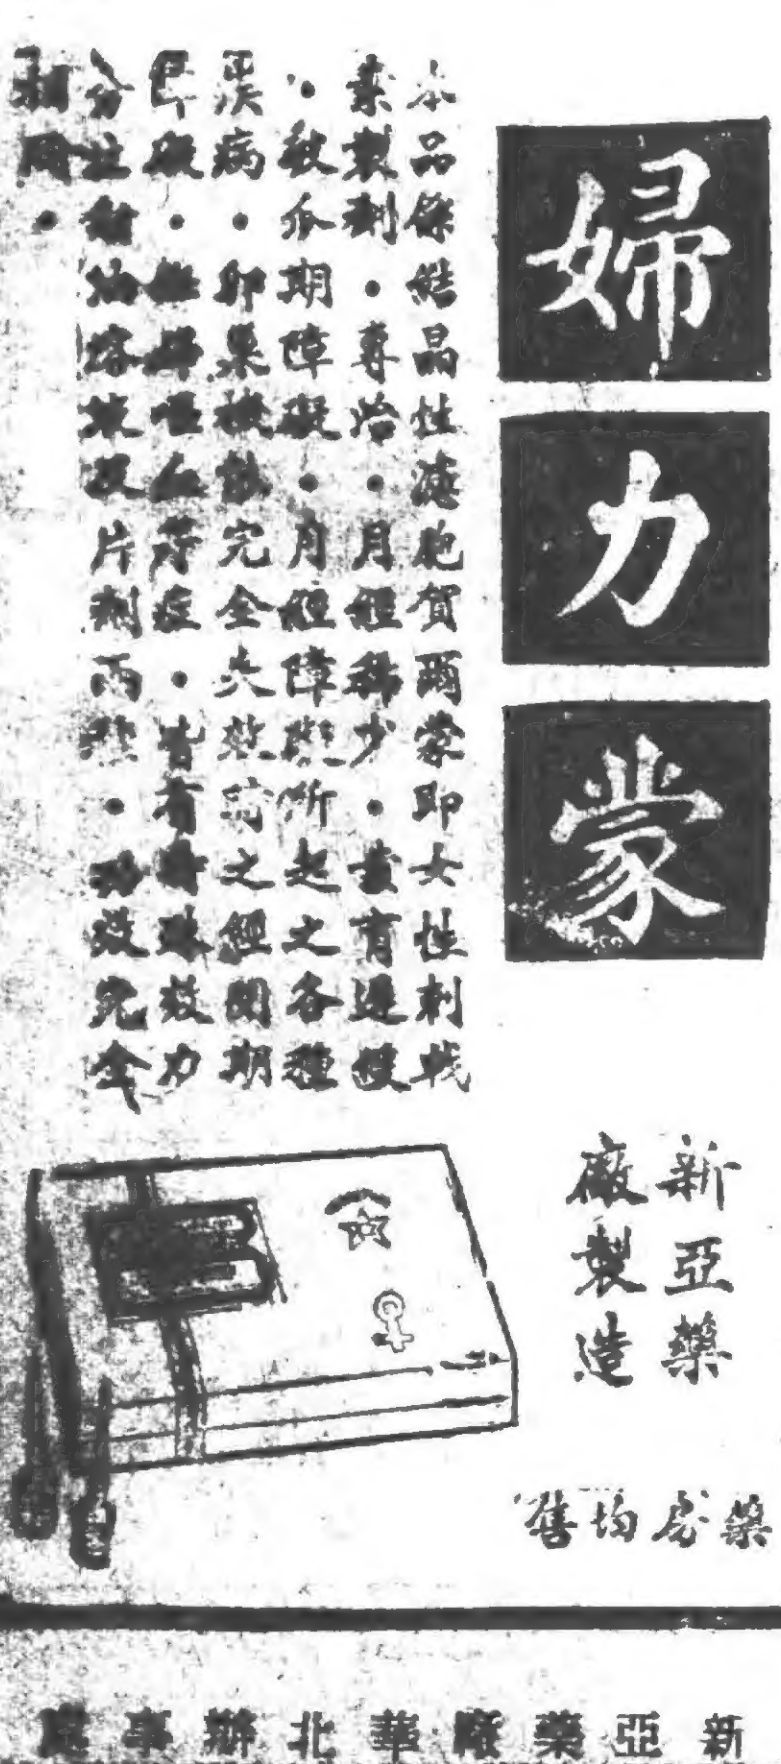 婦力蒙
本品係結晶性濾胞賀爾蒙即女性刺戟
素製劑・專治・月經稀少・發育遲緩
・秋爪期障礙・月經障礙所起之各種
疾病・卵巢機能完全失效時之經閉期
障礙・血荐症・皆有特殊效力
分注射油溶液及片劑兩種・功效完全
相同・
新亞藥
廠製造
藥房均售
新亞藥廠華北辦事處